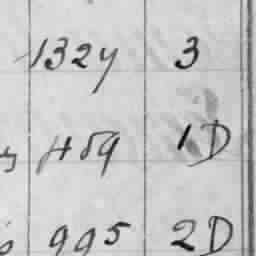 1324 3
459 1D
995 2D